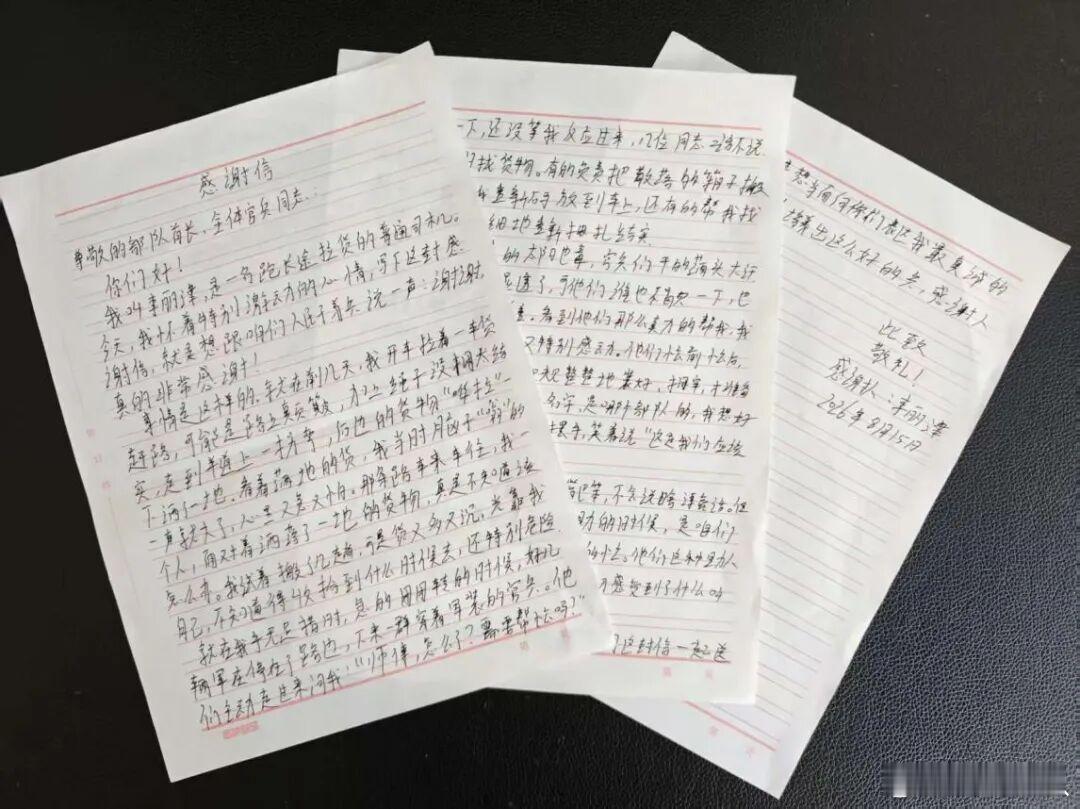 感谢信
尊敬的部队首长、全体官兵同志:
你们好!
我叫李丽津,是一名跑长途拉货的普通司机。
今天,我怀着特别激动的心情,写下这封感
谢信,就是想跟咱们人民子弟兵说一声:谢谢
真的非常感谢!
事情是这样的,就在前几天,我开车拉着一车货
赶路,可能是路上真颠簸,加上绳子没捆太结
实,走到半道上一拐弯,后边的货物“哗拉”一
下洒了一地。看着满地的货,我当时脑子“嗡”的
一声就大了,心里又急又怕。那条路车来车往,我一
个人,面对着洒落了一地的货物,真是不知道该
怎么办。我试着搬了几趟,可是货又多又沉,光靠我
自己,不知道得收拾到什么时候去,还特别危险
就在我手无足措时,急的团团转的时候,好几
辆军车停在了路边,下来一群穿着军装的官兵。他
们主动走过来问我:“师傅,怎么了?需要帮忙吗?”
一下,还没等我反应过来,几位同志二话不说
找货物。有的负责把散落的箱子搬
重新码放到车上,还有的帮我找
细地重新捆扎结实
的太阳也毒,官兵们干的满头大汗
湿透了,可他们谁也不肯歇一下,也
看到他们那么卖力的帮我,我
又特别感动。他们忙前忙后
规整整地装好,捆牢,才准备
名字,是哪个部队的,我想好
摆手,笑着说“这是我们应该
等,不会说啥漂亮话。但
助的时候,是咱们
他们这种助人
感觉到了什么叫
这封信一起送
想当面向你们表达我最真诚的
培养出这么好的兵,感谢人
此致
敬礼!
感谢人:李丽津
2026年8月15日